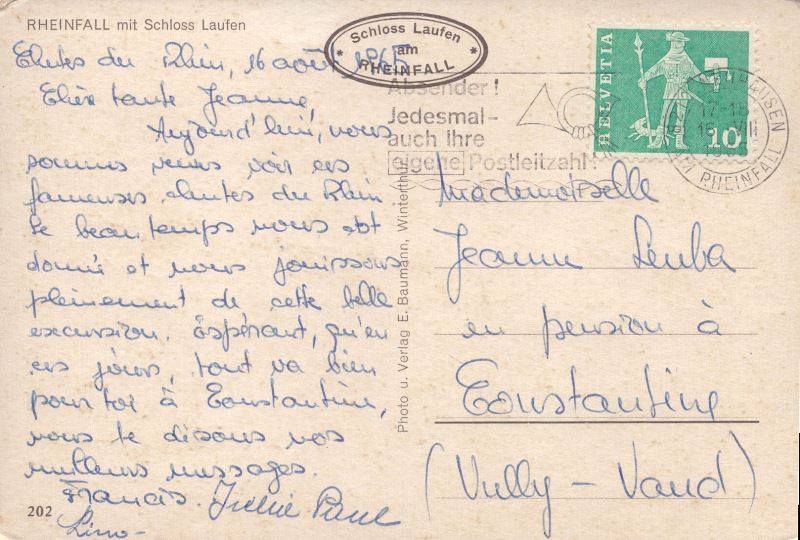 RHEINFALL mit Schloss Laufen
Chutes du Rhin, 16 août 1965
Chère tante Jeanne,
Aujourd'hui, nous
sommes venus voir ces
fameuses chutes du Rhin
Le beau temps nous est
donné et nous jouissons
pleinement de cette belle
excursion. Espérant, qu'en
ces jours, tout va bien
pour toi à Constantine,
nous te disons nos
meilleurs messages.
Francis. Julie Paul
Lino-
202
Photo u. Verlag E. Baumann, Winterthur
Schloss Laufen
am
RHEINFALL
Absender!
Jedesmal-
auch Ihre
eigene Postleitzahl
HELVETIA
10
HAUSEN
17-18
16. VII
RHEINFALL
Mademoiselle
Jeanne Leuba
en pension à
Constantine
(Vully - Vaud)